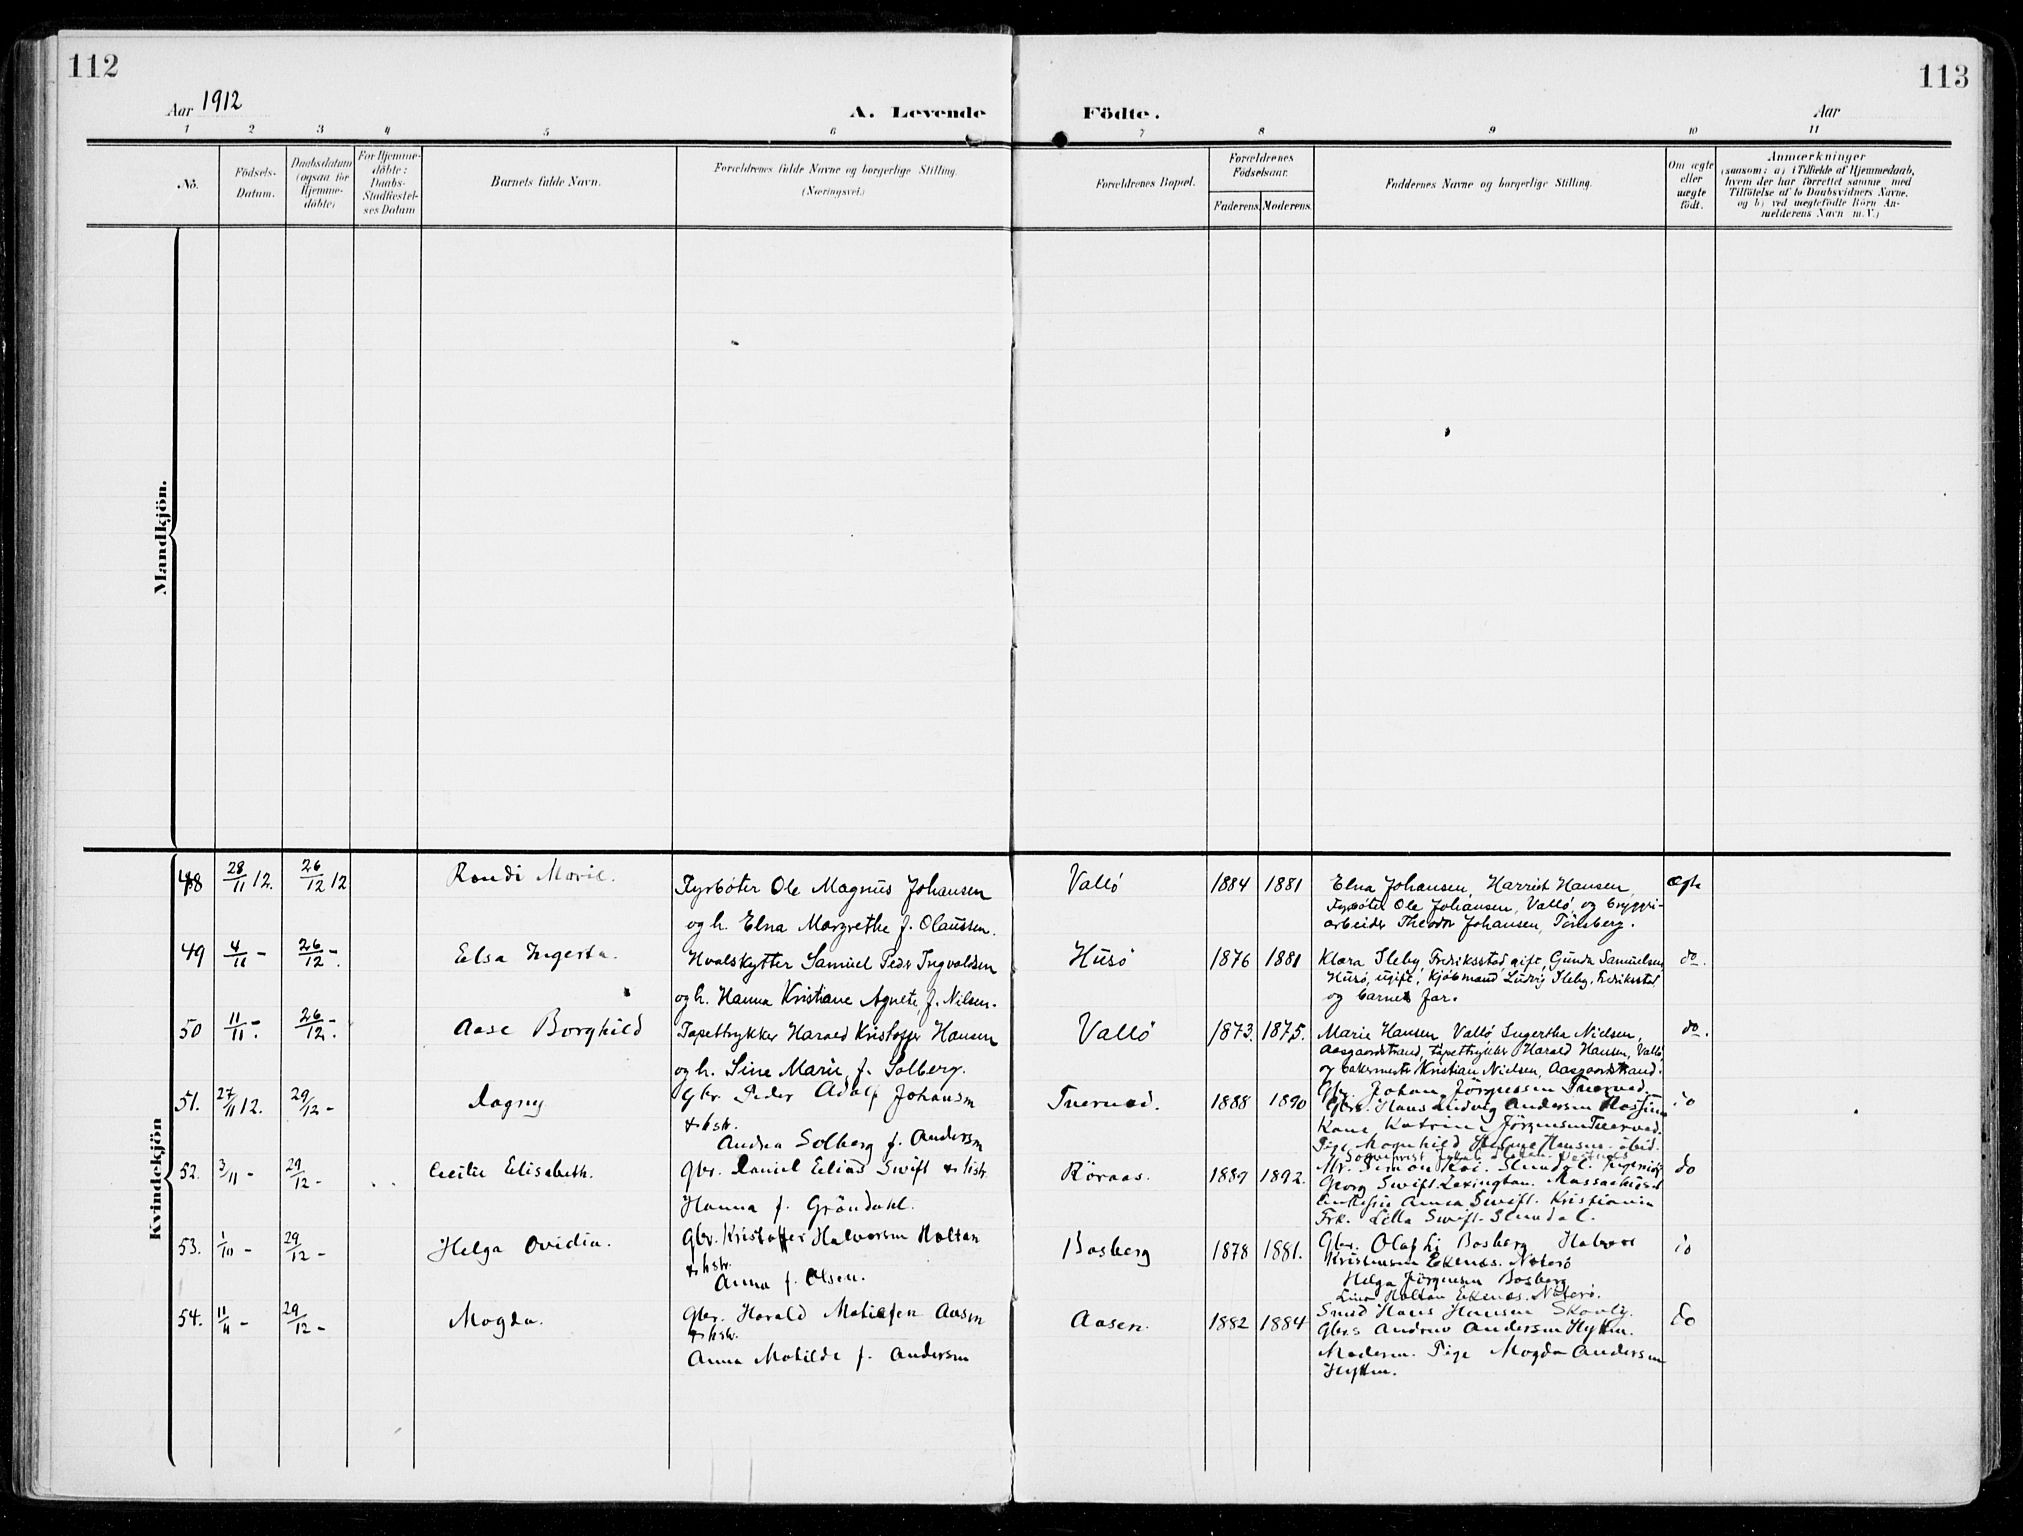 112
113
Aar 1912
A. Levende
Födte.
Aar
1 2 3 4 5 6 7 8 9 10 11
No.
Födsels-
Datum.
Daabsdatum
(ogsaa for
Hjemme-
döbte)
For Hjemme-
döbte:
Daabs-
Stadfæstel-
ses Datum
Barnets fulde Navn.
Forældrenes fulde Navne og borgerlige Stilling.
(Næringsvei.)
Forældrenes Bopæl.
Forældrenes
Födselsaar.
Faderens. Moderens.
Faddernes Navne og borgerlige Stilling.
Om ægte
eller
uægte
födt.
Anmærkninger
(saasom: a) i Tilfælde af Hjemmedaab,
hvem der har forrettet samme med
Tilföielse af to Daabsvidners Navne.
og b) ved uægtefödte Börn An-
melderens Navn m. V.)
Mandkjön.
Kvindekjön
48 28/11 12. 26/12 12 Randi Marie.
Fyrbøter Ole Magnus Johansen
og h. Elna Margrethe f. Olaussen.
Vallö 1884 1881
Elna Johansen, Harriet Hansen,
Fyrbøter Ole Johansen, Vallö, og bryggri-
arbeider Theodor Johansen, Tönsberg.
ægte
49 4/11 - 26/12 -. Elsa Ingerta.
Hvalskytter Samuel Peder Ingvaldsen
og h. Hanna Kristiane Agnete, f. Nilsen.
Husö 1876 1881
Klara Sleby, Fredriksstad, gift, Gunda Samuelsen,
Husö, ugift, Kjöbmand Ludvig Sleby, Fredriksstad
og barnets far.
do.
50 11/11 -. 26/12 -. Aase Borghild
Tapettrykker Harald Kristoffer Hansen
og h. Sine Marie, f. Solberg.
Vallö 1873. 1875.
Marie Hansen, Vallö, Ingertha Nielsen,
Aasgaardstrand, tapettrykker Harald Hansen, Vallö,
og bakermester Kristian Nielsen, Aasgaardstrand.
do.
51. 27/11 12. 29/12 - Dagny
Gbr. Peder Adolf Johansen
& hstr.
Andrea Solberg f. Andersen
Tverved. 1888 1890
Gbr. Johan Jörgensen Tverved.
Gbrs. Hans Ludvig Andersen
Kone Katrine Jörgensen Tverved.
Pige Magnhild Helene Hansen ibid.
do
52. 3/11 - 29/12 - Cecilie Elisabeth.
Gbr. Daniel Elias Swift & hstr.
Hanna f. Gröndahl.
Röraas. 1889 1892.
Georg Swift. Lexington. Massachuset
Anna Swift. Kristiania
Frk. Lilla Swift. Slendal.
do
53. 1/10 - 29/12 - Helga Ovidia.
Gbr. Kristoffer Halvorsen Holtan
& hstr.
Anna f. Olsen.
Basberg 1878 1881.
Gbr. Olaf Li Basberg Halvor
Kristensen Ekenes. Nöterö
Helga Jörgensen Basberg
Lina Holtan Ekenes. Nöterö.
do
54. 11/11 - 29/12 - Magda.
Gbr. Harald Matiasen Aasen
& hstr.
Anna Matilde f. Andersen
Aasen. 1882 1884
Smed Hans Hansen Skauby.
Gbrs Andreas Andersen Hytten.
Moderen. Pige Magda Andersen
Hytten.
do